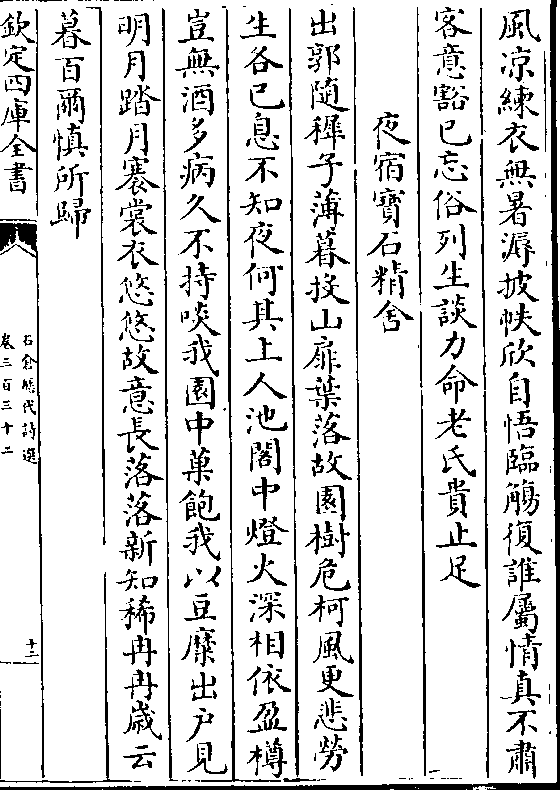 風凉練衣無暑溽披帙欣自悟臨觴復誰屬情真不肅
客意豁已忘俗列生談力命老氏貴止足
夜宿寳石精舍
出郭隨穉子薄暮投山扉葉落故園樹危柯風更悲勞
生各已息不知夜何其上人池閣中燈火深相依盈樽
豈無酒多病久不持啖我園中菓飽我以豆糜出戶見
明月踏月褰裳衣悠悠故意長落落新知稀冉冉歲云
暮百爾慎所歸
欽定四庫全書
石倉歷代詩選
卷三百三十二
十二